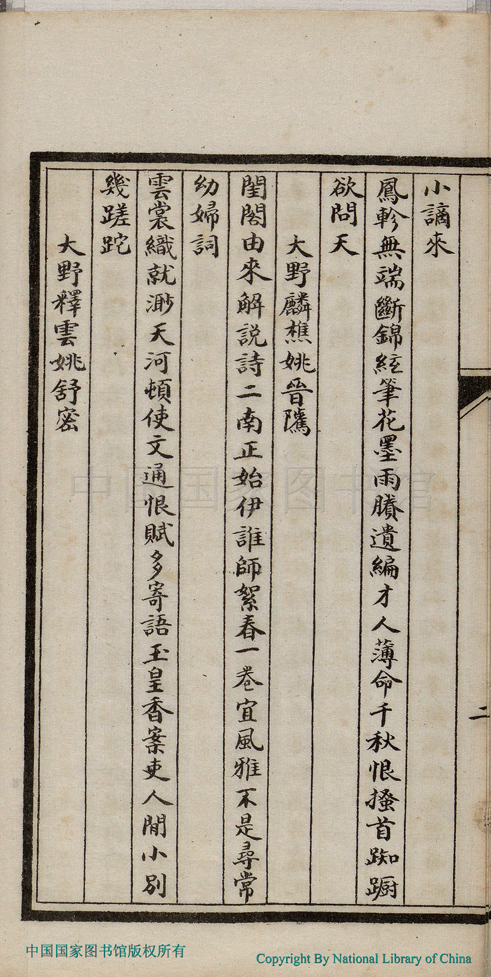 小謫來
鳳軫無端斷錦絃筆花墨雨賸遺編才人薄命千秋恨搔首踟蹰
欲問天
大野麟樵姚晉隲
閨閣由來解說詩二南正始伊誰師絮春一卷宜風雅不是尋常
幼婦詞
雲裳織就渺天河頓使文通恨賦多寄語玉皇香案吏人間小別
幾蹉跎
大野釋雲姚舒密
二
中国国家图书馆
中国国家图书馆版权所有
Copyright By National Library of China